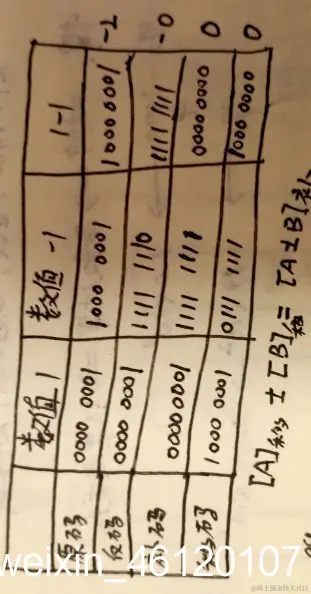 数值 1 数值 -1 1-1
原码 0000 0001 1000 0001 10000001 -2
反码 0000 0001 1111 1110 1111 1111 -0
码 0000 0001 1111 1111 0000 0000 0
码 1000 0001 0111 1111 1000 0000 0
[A]补 ± [B]补 = [A±B]补
weixin_46120107
@稀土掘金技术社区